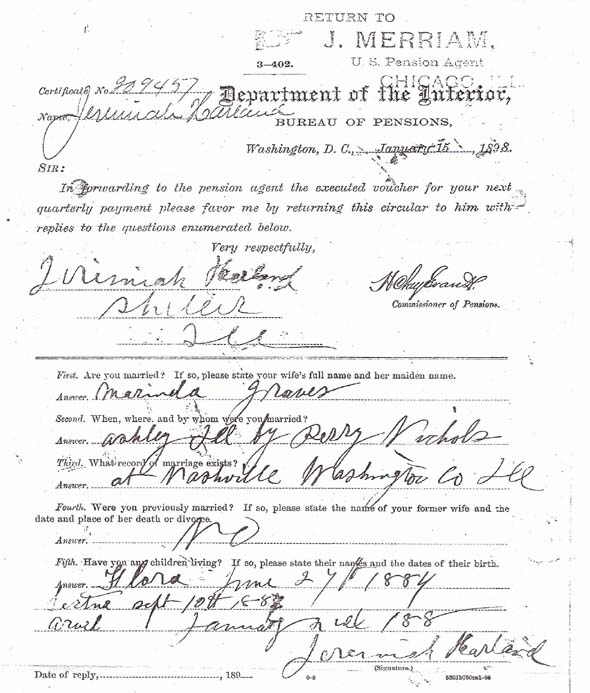 RETURN TO
J. MERRIAM,
3—402.
U. S. Pension Agent
CHICAGO, ILL.
Certificate No. 909457
Department of the Interior,
Name, Jeremiah Harland
BUREAU OF PENSIONS,
Washington, D. C., January 15, 1898.
SIR:
In forwarding to the pension agent the executed voucher for your next
quarterly payment please favor me by returning this circular to him with
replies to the questions enumerated below.
Very respectfully,
Jeremiah Harland
H Clay Evans
Commissioner of Pensions.
Ill
First. Are you married? If so, please state your wife's full name and her maiden name.
Answer. Marinda Graves
Second. When, where, and by whom were you married?
Answer. Ashley Ill by Perry Nichols
Third. What record of marriage exists?
Answer. at Nashville Washington Co Ill
Fourth. Were you previously married? If so, please state the name of your former wife and the
date and place of her death or divorce.
Answer. No
Fifth. Have you any children living? If so, please state their names and the dates of their birth.
Answer. Flora June 27th 1884
sept 10th 188
January 188
Jeremiah Harland
(Signature.)
Date of reply, , 189